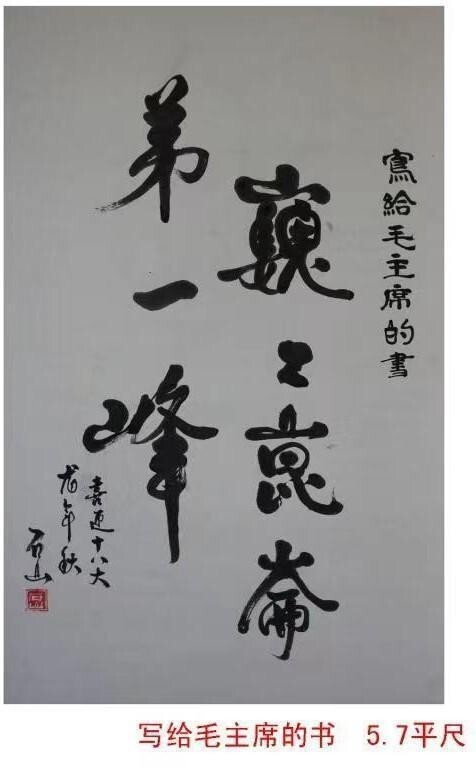 寫給毛主席的書
巍〻崑崙
第一峰
喜迎十八大
龙年秋
石山
写给毛主席的书 5.7平尺